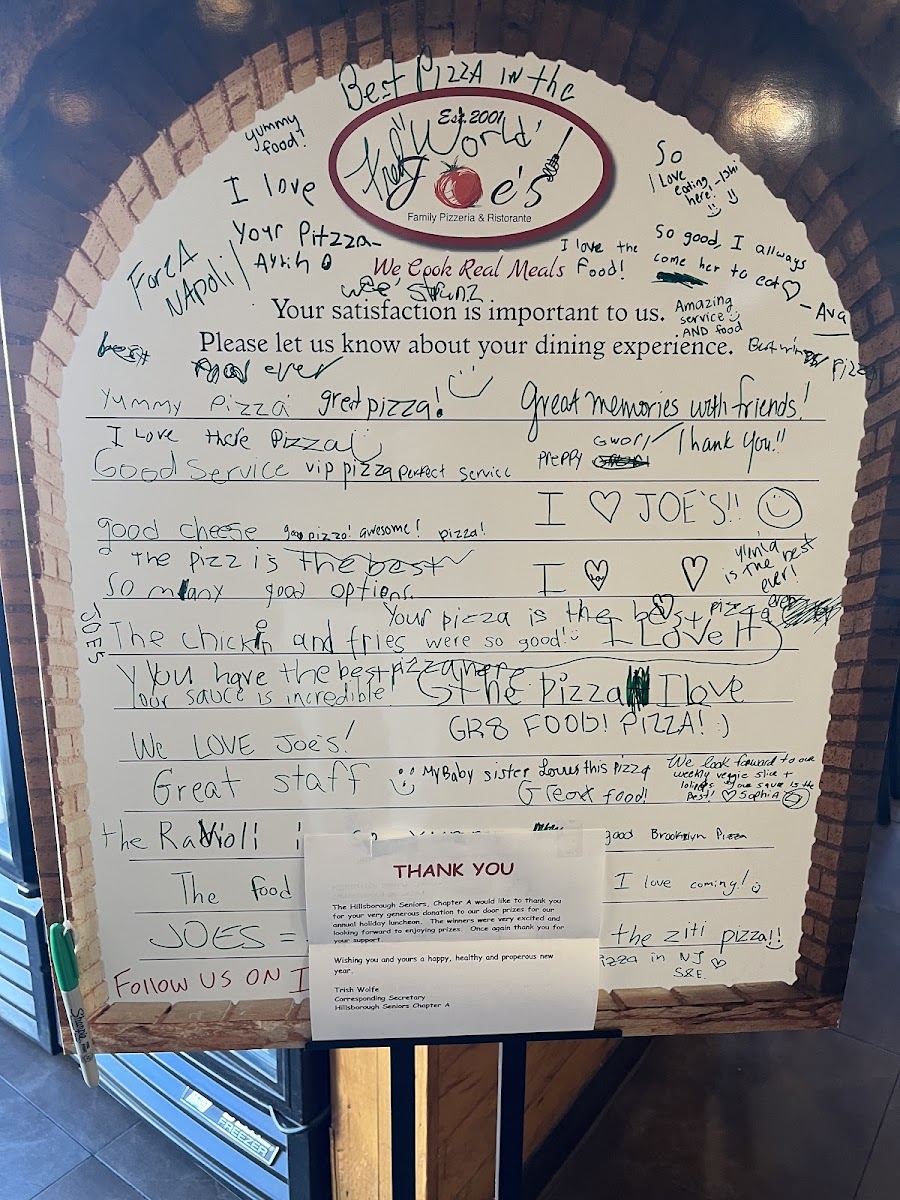 Best Pizza in the
Est. 2001
"World"
Joe's
Family Pizzeria & Ristorante
yummy
food!
I love
Your Pitzza-
ForzA
NAPOLI
So
I love
eating
here!
So good, I allways
come her to eat♡
- Ava
I love the
food!
We Cook Real Meals
Your satisfaction is important to us.
Amazing
service
AND food
Please let us know about your dining experience.
best
ever
Pizza
Yummy Pizza great pizza!
Great memories with friends!
I Love there Pizza
Thank You!!
Good Service vip pizza perfect service
preppy
I ♡ JOE'S!!
good cheese pizza! awesome! pizza!
the pizz is the best
is the best
ever!
I ♡ ♡
So many good options.
Your pizza is the best pizza
JOES
The chickin and fries were so good! I Love it
Y You have the best pizza here
Your sauce is incredible! the pizza I love
GR8 FOOD! PIZZA! :)
We LOVE Joe's!
Great staff
My Baby sister Loves this Pizza
Great food!
We look forward to our
weekly veggie slice +
Your sauce is the
Best! ♡ Sophia
the Ravioli
good Brooklyn Pizza
The food
I love coming!
JOES =
the ziti pizza!!
pizza in NJ ♡
S&E.
Follow us on I
THANK YOU
The Hillsborough Seniors, Chapter A would like to thank you
for your very generous donation to our door prizes for our
annual holiday luncheon. The winners were very excited and
looking forward to enjoying prizes. Once again thank you for
your support.
Wishing you and yours a happy, healthy and properous new
year.
Trish Wolfe
Corresponding Secretary
Hillsborough Seniors Chapter A
Sharpie
FREEZER